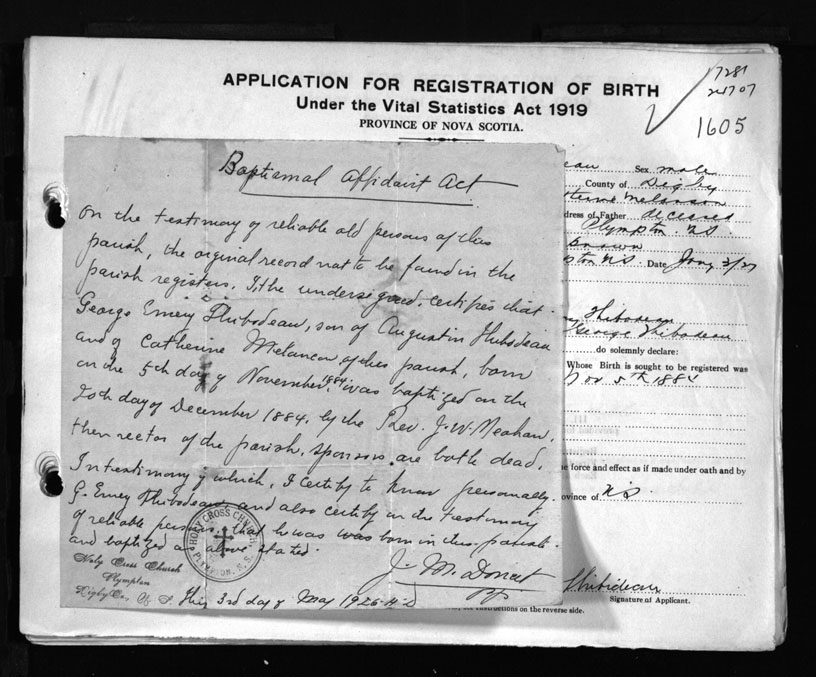 APPLICATION FOR REGISTRATION OF BIRTH
Under the Vital Statistics Act 1919
PROVINCE OF NOVA SCOTIA.
1605
Sex male
County of Digby
dress of Father deceased
Plympton. NS
N.S. Date
Thibodeau
George Thibodeau
do solemnly declare:
Whose Birth is sought to be registered was
Nov 5th 1884
force and effect as if made under oath and by
ovince of N.S.
Thibideau
Signature of Applicant.
instructions on the reverse side.
Baptismal Affidavit Act
On the testimony of reliable old persons of this
parish, the orginal record not to be found in the
parish registers. I, the undersigned, certifies that
George Emery Thibodeau, son of Augustin Thibodeau
and of Catherine Melancon, of this parish, born
on the 5th day of November, 1884, was baptized on the
20th day of December 1884, by the Rev. J. W. Meahan,
then rector of the parish, sponsors are both dead.
In testimony of which, I certify to know personally
G. Emery Thibodeau, and also certify on the testimony
of reliable persons, that he was was born in this parish
and baptized as above stated.
HOLY CROSS CHURCH
PLYMPTON, N.S.
Holy Cross Church
Plympton
Digby Co.,
This 3rd day of May 1926